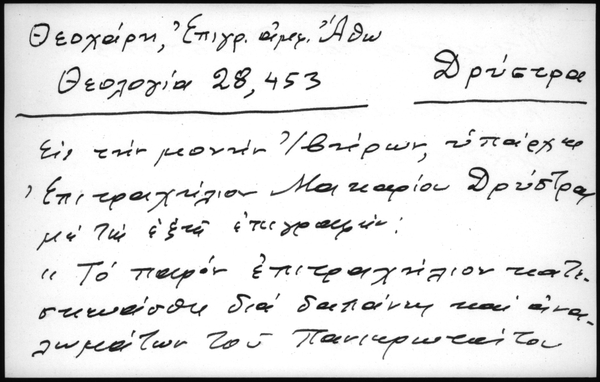 Θεοχάρη, Ἐπιγρ. ἀμφ. Ἄθω
Θεολογία 28, 453
Δρύστρα
Εἰς τὴν μονὴν Ἰβήρων, ὑπάρχει
Ἐπιτραχήλιον Μακαρίου Δρύστρα
μὲ τὴν ἑξῆς ἐπιγραφήν:
"Τό παρόν ἐπιτραχήλιον κατε-
σκευάσθη διά δαπάνης καί ἀνα-
λωμάτων τοῦ Πανιερωτάτου